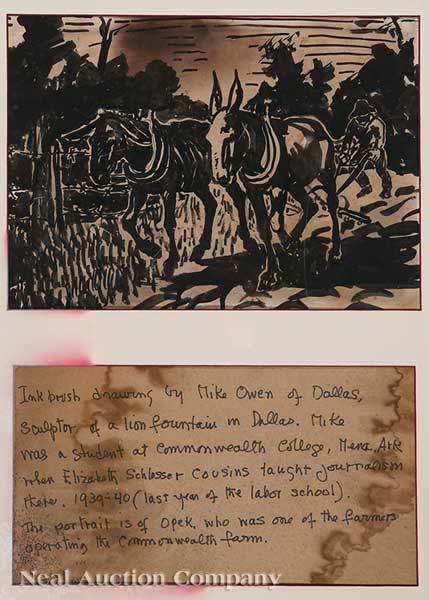 Ink brush drawing by Mike Owen of Dallas,
sculptor of a lion fountain in Dallas. Mike
was a student at Commonwealth College, Mena, Ark
when Elizabeth Schlosser Cousins taught journalism
there. 1939-40 (last year of the labor school).
The portrait is of Opek, who was one of the farmers
operating the Commonwealth farm.
Neal Auction Company